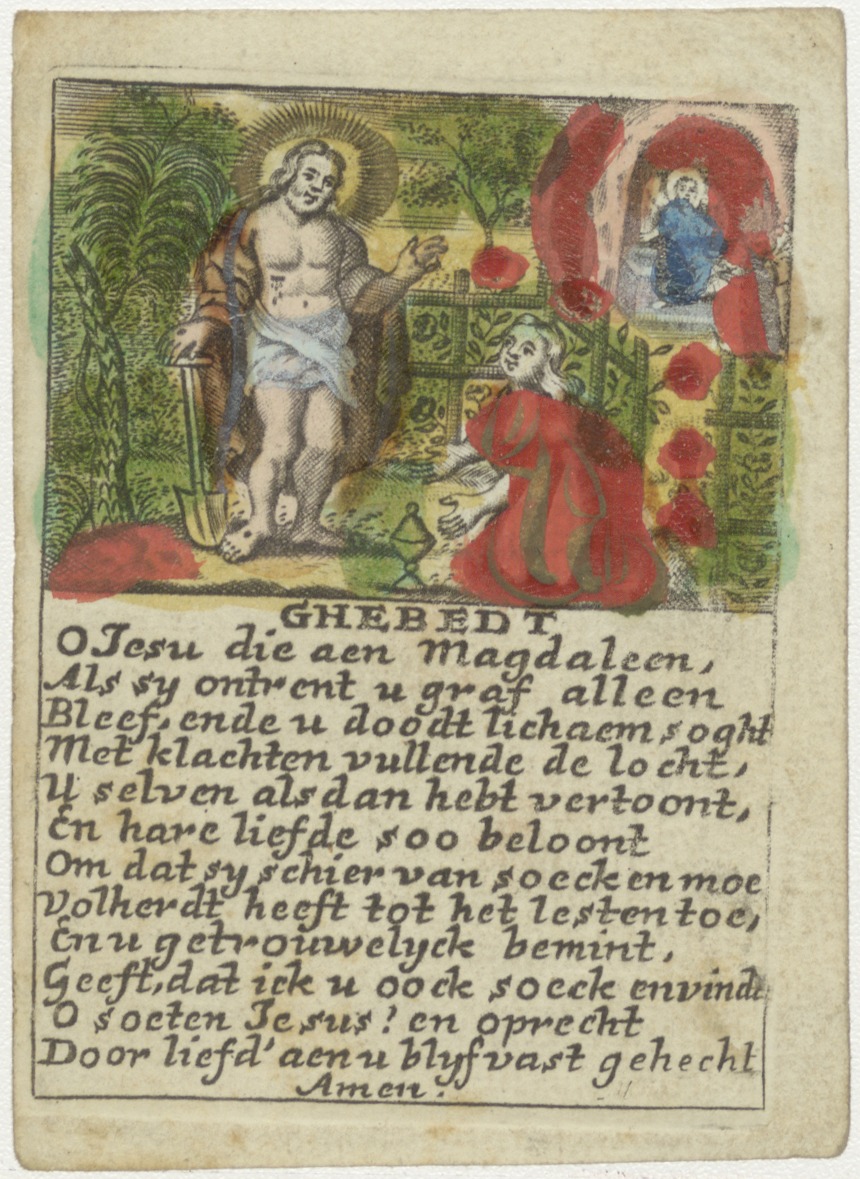 GHEBEDT
O Jesu die aen Magdaleen,
Als sy ontrent u graf alleen
Bleef, ende u doodt lichaem soght
Met klachten vullende de locht,
U selven alsdan hebt vertoont,
En hare liefde soo beloont
Om dat sy schier van soecken moe
Volherdt heeft tot het lesten toe,
En u getrouwelyck bemint,
Geeft, dat ick u oock soeck en vindt
O soeten Jesus! en oprecht
Door liefd' aen u blyf vast gehecht
Amen.